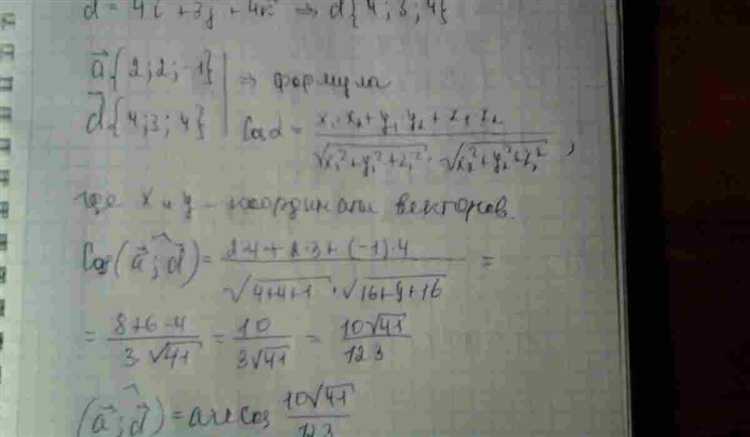 d = 4i + 3j + 4k ⇒ d{4; 3; 4}
a{2; 2; -1} | ⇒ формула
d{4; 3; 4} | Cosα = (x₁·x₂ + y₁·y₂ + z₁·z₂) / (√(x₁² + y₁² + z₁²) · √(x₂² + y₂² + z₂²)),
где x и y - координаты векторов.
Cos(a; d) = (2·4 + 2·3 + (-1)·4) / (√(4+4+1) · √(16+9+16)) =
= (8+6-4) / (3·√41) = 10 / (3√41) = 10√41 / 123
(a; d) = arccos 10√41 / 123